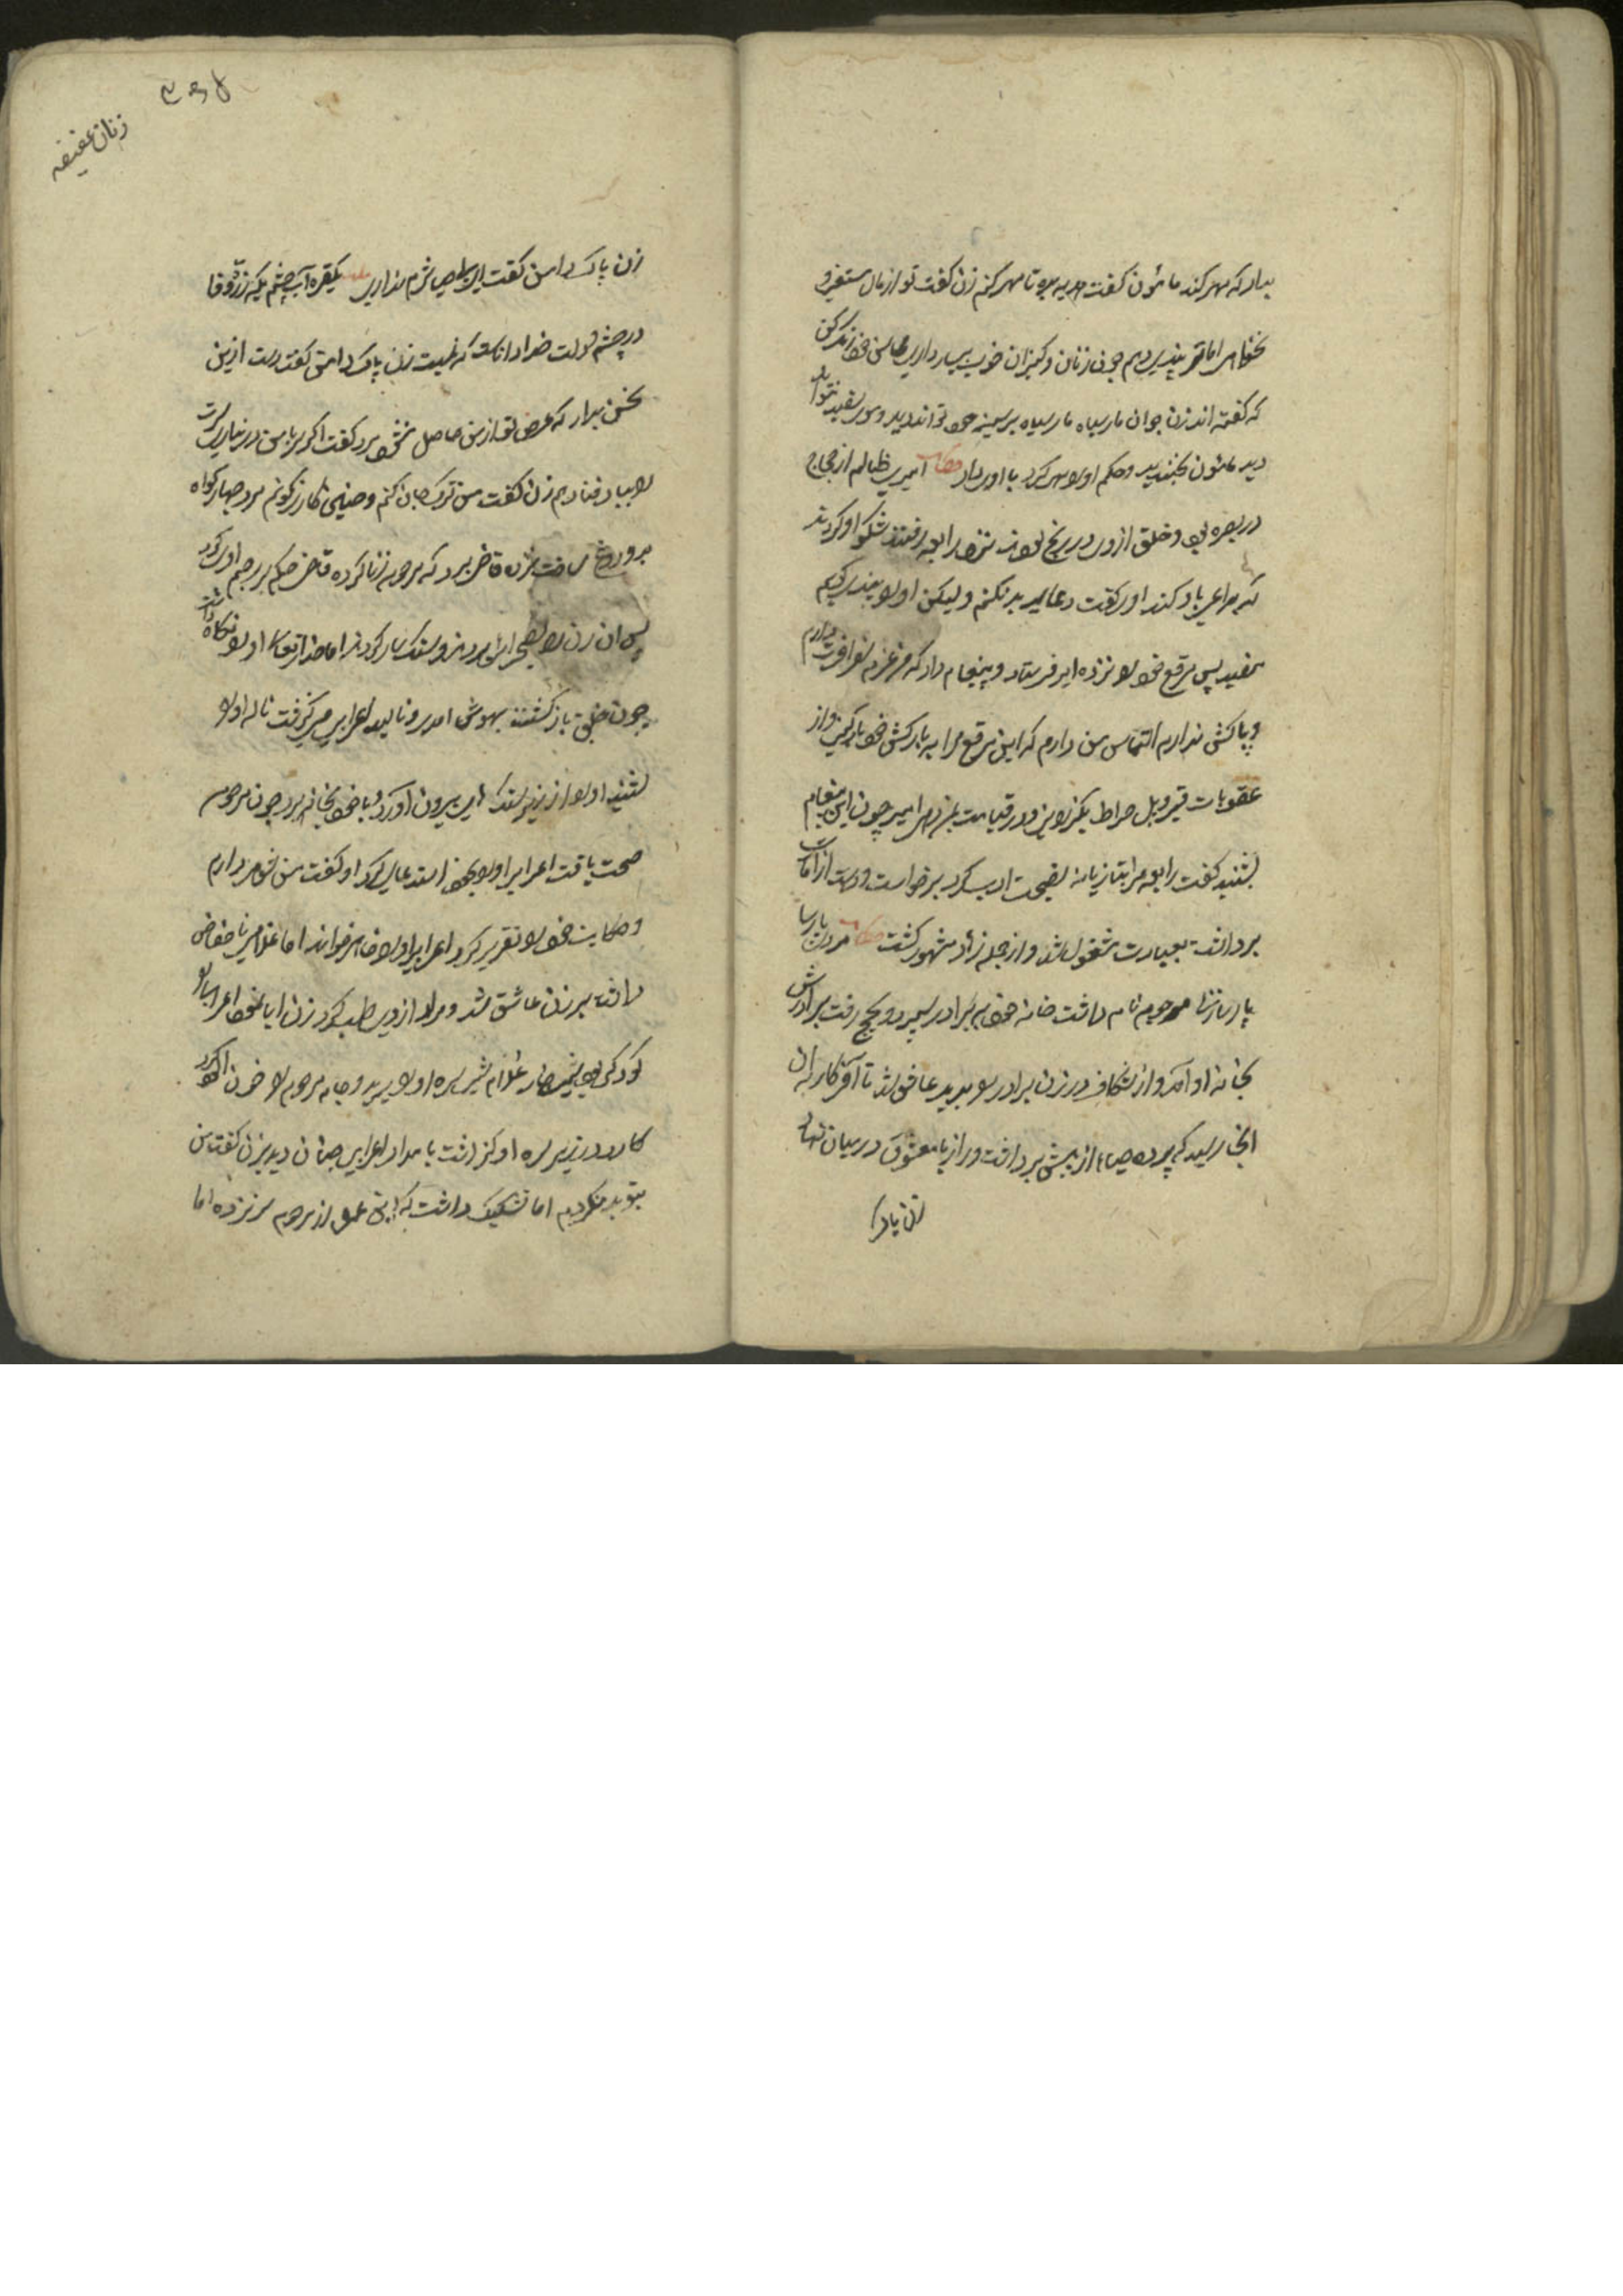 بیار که مهر کند مأمون گفت هدیه بیوه تا مهر کنم زن گفت تو از مال مستغنی و
نخواهم اما ترا پندی دهم چون زنان و کنیزان خوب بسیار داری محاسن خود را رنگ کن
که گفته اند زن جوان مار سیاه مار سیاه بر سینه خود تواند دید و موی سفید نتواند
دید مأمون بخندید و حکم اورا مهر کرد باو داد حکایت امیری ظالم از حجاج
در بصره بود و خلق از وی در رنج بودند نزد رابعه رفتند شکوه او کردند
که دعای بد کند او گفت دعای بد نکنم ولیکن اورا پندی گویم
مفید پس مرقع خود را نزد امیر فرستاد و پیغام داد که عزم سفر آخرت دارم
و بارکش ندارم التماس من دارم که این مرقع مرا بر بارکش خود بار کنی و از
عقوبات قبر و پل صراط بگذرانی و در قیامت بمن دهی امیر چون این پیغام
بشنید گفت رابعه مرا بتازیانه نصیحت ادب کرد برخواست و دست از امارت
برداشت بعبادت مشغول شد و از جمله زهاد مشهور گشت حکایت مردی پارسا
پارسا زنی مرحومه نام داشت خانه خود به برادر سپرد و بحج رفت برادرش
بخانه او آمد و از شکاف در زن برادر را بدید عاشق شد تا آخر کار به آن
انجا رسید که پرده حیا از پیش برداشت و راز با معشوق در میان نهاد
زن پاک
زنان عفیفه
زن پاک دامن گفت ای بطل شرم نداری یکقطره آب چشم یکذره وفا
در چشم و دلت خدا داناست که نیست زن پاک دامن گفت دست ازین
سخن بدار که غرض تو از من حاصل نخواهد شد گفت اگر سر با من در نیاری ترا
را بباد فنا دهم زن گفت من ترک جان کنم و چنین کار نکنم مرد چهار گواه
بدروغ ساخت نزد قاضی برد که مرحومه زنا کرده قاضی حکم بر رجم او کرد
پس آن زن را بصحرا بردند و سنگسار کردند اما خدایتعالی اورا نگاه داشت
چون خلق باز گشتند بهوش آمد و نالید اعرابی میگذشت ناله اورا
شنید اورا از زیر سنگ بیرون آورد و با خود بخانه برد چون مرحومه
صحت یافت اعرابی اورا بخود استدعا کرد او گفت من شوهر دارم
و حکایت خود را تقریر کرد اعرابی اورا خواهر خواند اما غلامی ناحفاظ
داشت بر زن عاشق شد و مراد از وی طلب کرد زن ابا نمود اعرابی را
کودکی بود شیرخوار غلام شب سر اورا برید و جامه مرحومه را خون آلود کرد
کارد در زیر سر او گذاشت بامداد اعرابی چنان دید بزن گفت من
بتو بد نکردیم اما تشکیک داشت که این عمل از مرحومه سر نزده اما